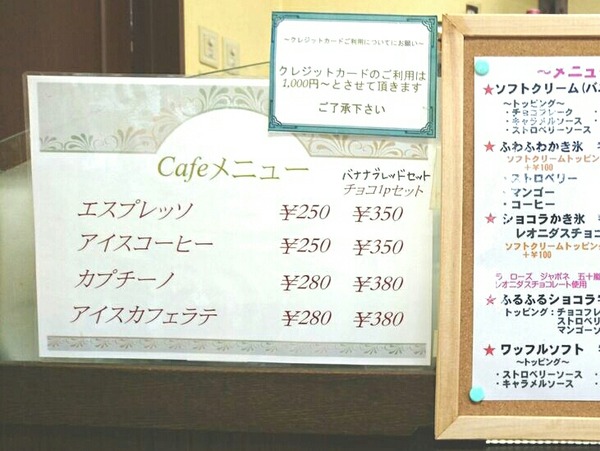 ～クレジットカードご利用についてにお願い～
クレジットカードのご利用は
1,000円～とさせて頂きます
ご了承下さい
Cafeメニュー
バナナブレッドセット
チョコ1pセット
エスプレッソ ¥250 ¥350
アイスコーヒー ¥250 ¥350
カプチーノ ¥280 ¥380
アイスカフェラテ ¥280 ¥380
～メニュ
★ソフトクリーム(バ
～トッピング～
・チョコフレーク
・キャラメルソース
・ストロベリーソース
★ふわふわかき氷
ソフトクリームトッピン
+¥100
・ストロベリー
・マンゴー
・コーヒー
★ショコラかき氷
レオニダスチョコ
ソフトクリームトッピング
+¥100
ラ ローズ ジャポネ 五十嵐
レオニダスチョコレート使用
★ふるふるショコラ
トッピング：チョコフレ
ストロベ
マンゴーソ
★ワッフルソフト
～トッピング～
・ストロベリーソース
・キャラメルソース